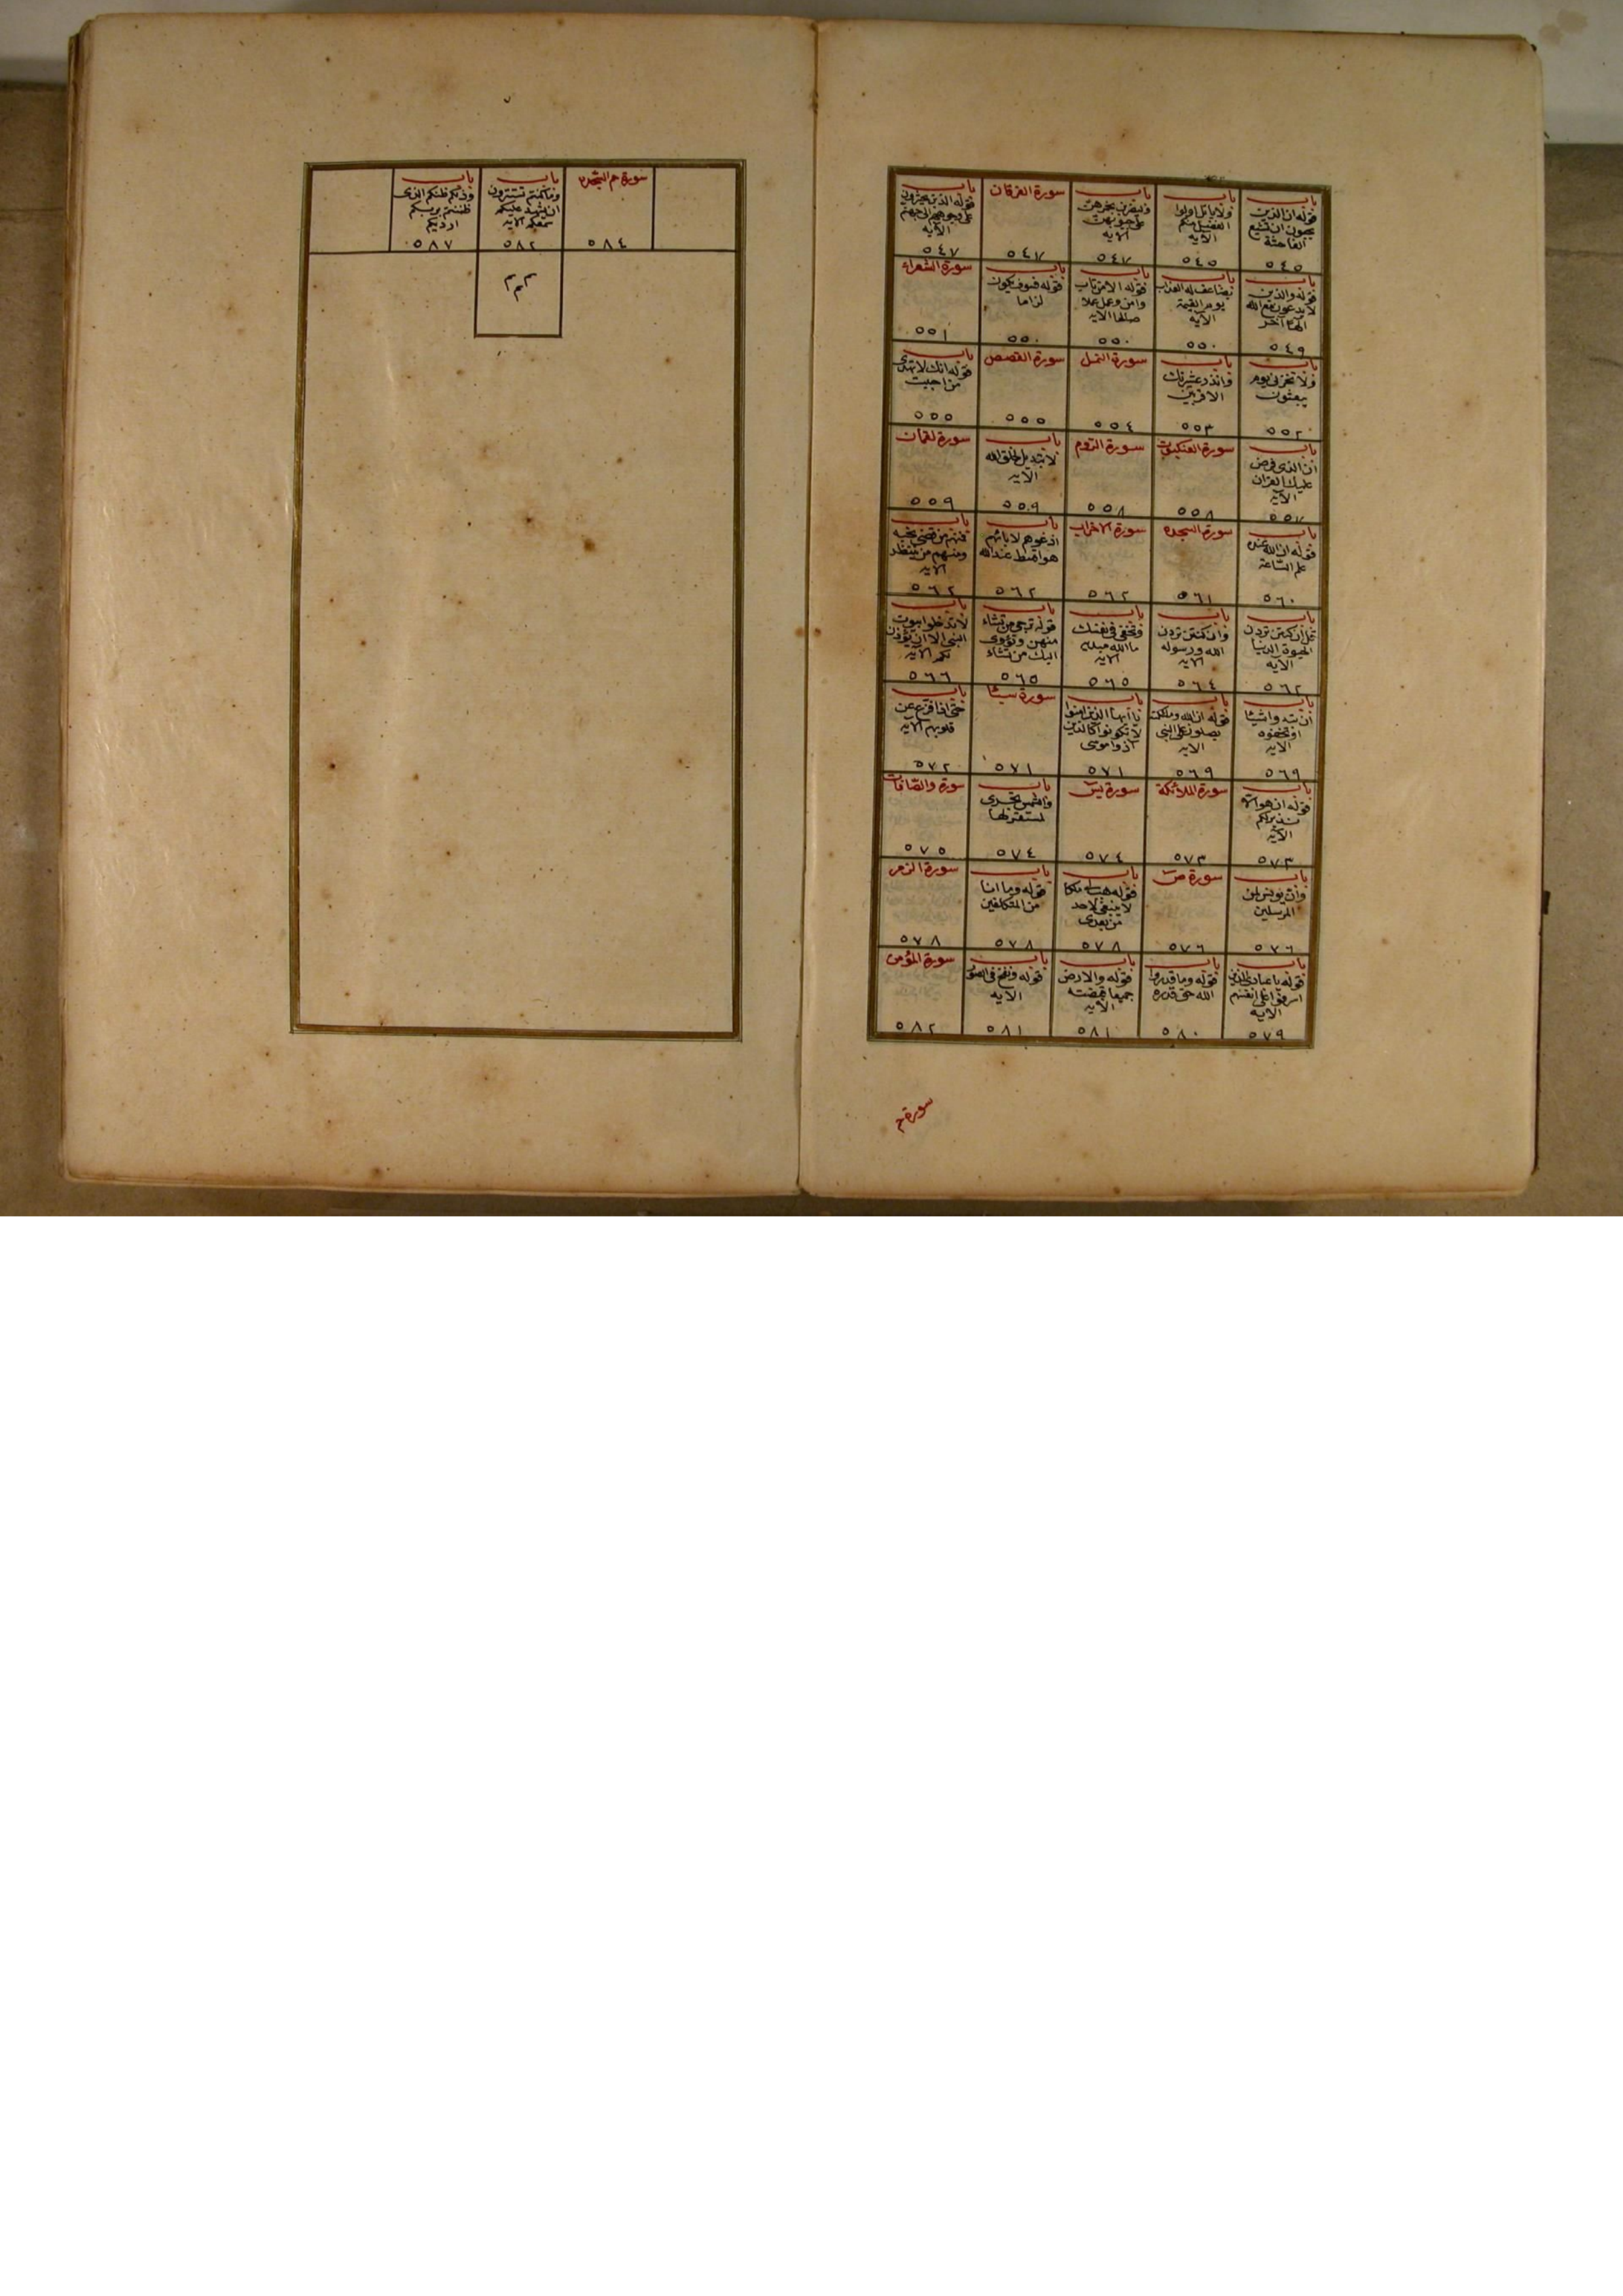 باب
قوله ان الذين
يحبون ان تشيع
الفاحشة
٥٤٥
باب
ولا ياتل اولوا
الفضل منكم
الآيه
٥٤٥
باب
وليضربن بخمرهن
على جيوبهن
الآيه
٥٤٧
سورة الفرقان
٥٤٧
باب
قوله الذين يحشرون
على وجوههم الى جهنم
الآيه
٥٤٧
باب
قوله والذين
لا يدعون مع الله
الها آخر
٥٤٩
باب
يضاعف له العذاب
يوم القيمة
الآيه
٥٥٠
باب
قوله الا من تاب
وامن وعمل عملا
صالحا الايه
٥٥٠
باب
قوله فسوف يكون
لزاما
٥٥٠
سورة الشعراء
٥٥١
باب
ولا تخزنى يوم
يبعثون
٥٥٢
باب
وانذر عشيرتك
الاقربين
٥٥٣
سورة النمل
٥٥٤
سورة القصص
٥٥٥
باب
قوله انك لا تهدى
من احببت
٥٥٥
باب
ان الذى فرض
عليك القران
الآيه
٥٥٧
سورة العنكبوت
٥٥٨
سورة الروم
٥٥٨
باب
لا تبديل لخلق الله
الآيه
٥٥٩
سورة لقمان
٥٥٩
باب
قوله ان الله عنده
علم الساعة
٥٦٠
سورة السجده
٥٦١
سورة الاحزاب
٥٦٢
باب
ادعوهم لابائهم
هو اقسط عند الله
٥٦٢
باب
فمنهم من قضى نحبه
ومنهم من ينتظر
الآيه
٥٦٢
باب
ان كنتن تردن
الحيوة الدنيا
الآيه
٥٦٢
باب
وان كنتن تردن
الله ورسوله
الآيه
٥٦٤
باب
وتخفى فى نفسك
ما الله مبديه
الآيه
٥٦٥
باب
قوله ترجى من تشاء
منهن وتؤوى
اليك من تشاء
٥٦٥
باب
لا تدخلوا بيوت
النبى الا ان يؤذن
لكم الآيه
٥٦٦
باب
ان تبدوا شيئا
او تخفوه
الآيه
٥٦٩
باب
قوله ان الله وملائكته
يصلون على النبى
الآيه
٥٦٩
باب
يا ايها الذين امنوا
لا تكونوا كالذين
آذوا موسى
٥٧١
سورة سبأ
٥٧١
باب
حتى اذا فزع عن
قلوبهم الآيه
٥٧٢
باب
قوله ان هو الا
نذير لكم
الآيه
٥٧٣
سورة الملائكة
٥٧٣
سورة يس
٥٧٤
باب
والشمس تجرى
لمستقر لها
٥٧٤
سورة والصافات
٥٧٥
باب
وان يونس لمن
المرسلين
٥٧٦
سورة ص
٥٧٦
باب
قوله هب لى ملكا
لا ينبغى لاحد
من بعدى
٥٧٨
باب
قوله وما انا
من المتكلفين
٥٧٨
سورة الزمر
٥٧٨
باب
قوله يا عبادى الذين
اسرفوا على انفسهم
الآيه
٥٧٩
باب
قوله وما قدروا
الله حق قدره
٥٨٠
باب
قوله والارض
جميعا قبضته
الآيه
٥٨١
باب
قوله ونفخ فى الصور
الآيه
٥٨١
سورة المؤمن
٥٨٢
سورة حم
سورة حم السجده
٥٨٤
باب
وما كنتم تستترون
ان يشهد عليكم
سمعكم الآيه
٥٨٢
باب
وذلكم ظنكم الذى
ظننتم بربكم
ارديكم
٥٨٧